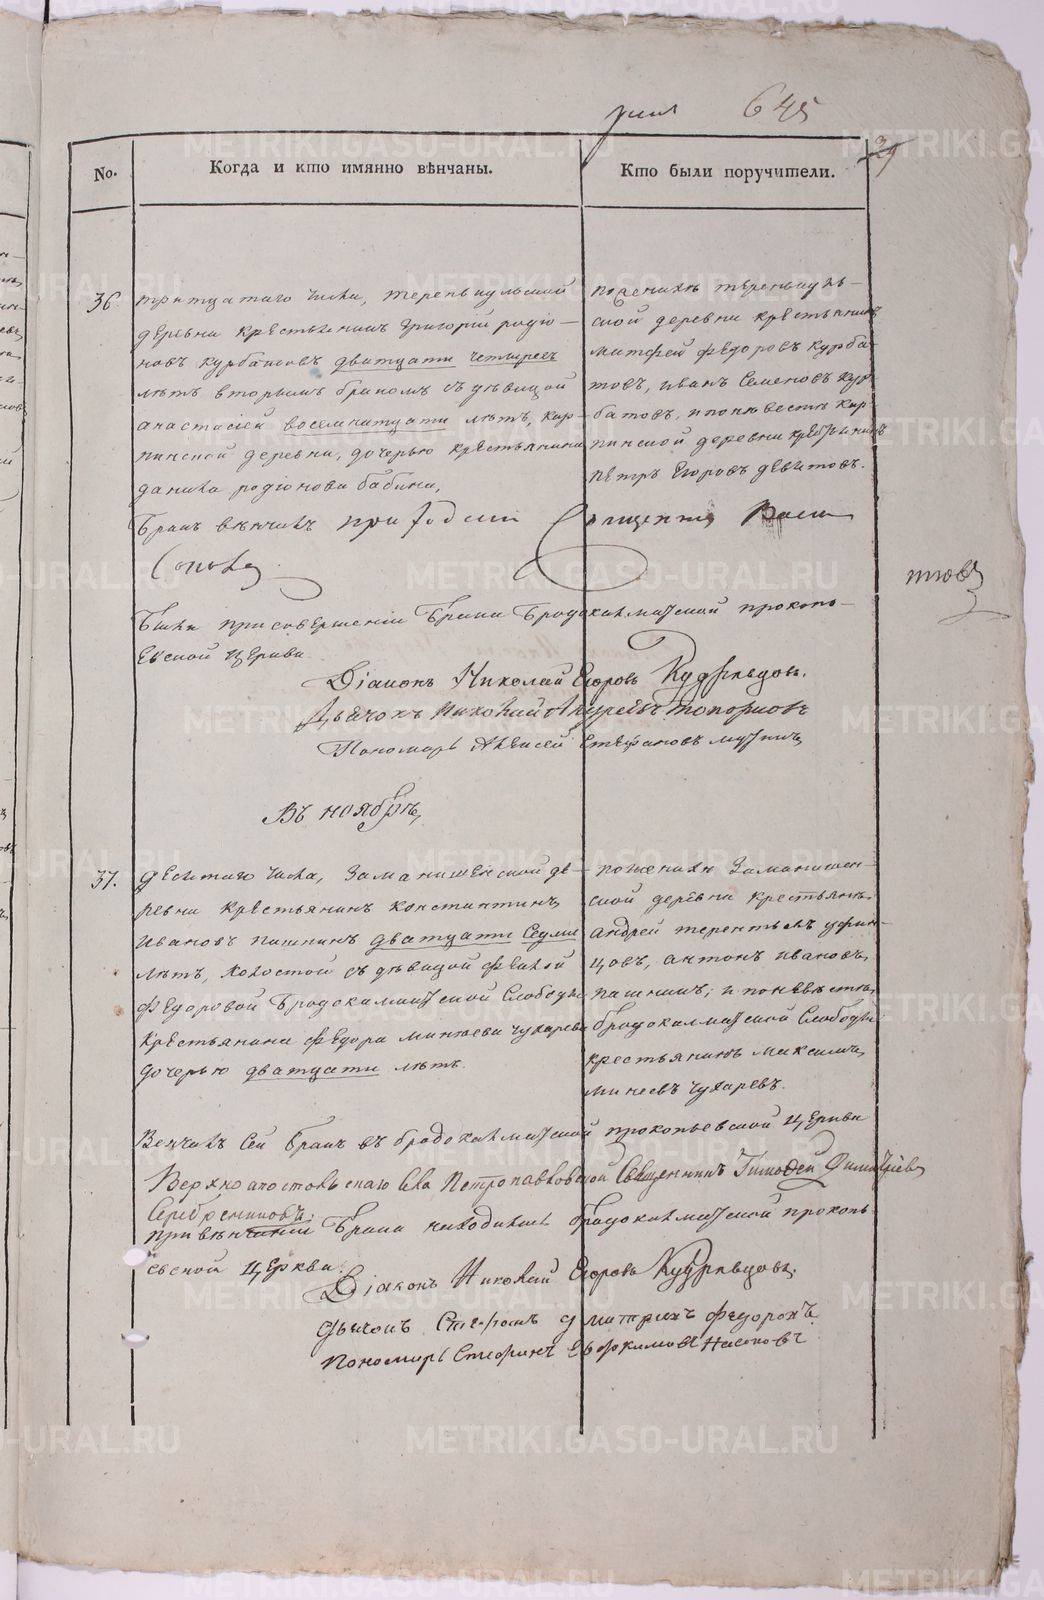 645
29
No.
Когда и кто имянно вѣнчаны.
Кто были поручители.
36
тритцатаго числа,
деревни крестьянинъ Григорій родіо-
новъ курбатовъ дватцати четырехъ
лѣтъ вторымъ бракомъ съ дѣвицой
анастасіей восемнатцати лѣтъ, кир-
пинской деревни, дочерью крестьянина
данила родіонова бабина,
по женихѣ
ской деревни крестьянинъ
матфей федоровъ курба-
товъ, иванъ семеновъ кур-
батовъ, и по невестѣ кир-
пинской деревни крестьянинъ
петръ егоровъ девятовъ.
бракъ венчалъ приходскій Священникъ Васи
Поповъ
Были при совершеніи брака бродокалматской прокопь-
евской церкви
Діаконъ Николай Егоровъ Кудрявцовъ.
Дьячокъ Николай Андреевъ Топорковъ
Пономарь Алексей Стефановъ
Въ ноябрѣ,
37.
десятаго числа, Заманишенской де-
ревни крестьянинъ константинъ
ивановъ пашнинъ дватцати седми
лѣтъ, холостой съ дѣвицой феклой
федоровой бродокалматской слободы
крестьянина федора минѣева чухарева
дочерью дватцати лѣтъ.
по женихѣ Заманишен-
ской деревни крестьянъ
андрей терентьевъ уфин-
цовъ, антонъ ивановъ
пашнинъ; и по невѣстѣ
бродокалматской слободы
крестьянинъ максимъ
минеевъ чухаревъ.
Венчалъ сей бракъ въ бродокалматской прокопьевской церкви
Верхноапостольскаго села Петропавловской Священникъ Тимофей Димитріевъ
Серебрениковъ.
при вѣнчаніи брака находились бродокалматской прокопь-
евской церкви.
Діаконъ Николай Егоровъ Кудрявцовъ,
дьячокъ Стефанъ дмитріевъ федоровъ
пономарь Стефанъ Евдокимовъ Насоновъ
METRIKI.GASO-URAL.RU